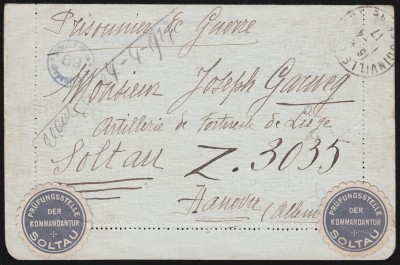 Prisonnier de Guerre
4-4-1917
Monsieur Joseph
Artillerie de forteresse de Liége
Soltau Z. 3035
Hanovre (Allem
PRÜFUNGSSTELLE
DER
KOMMANDANTUR
SOLTAU
PRÜFUNGSSTELLE
DER
KOMMANDANTUR
SOLTAU